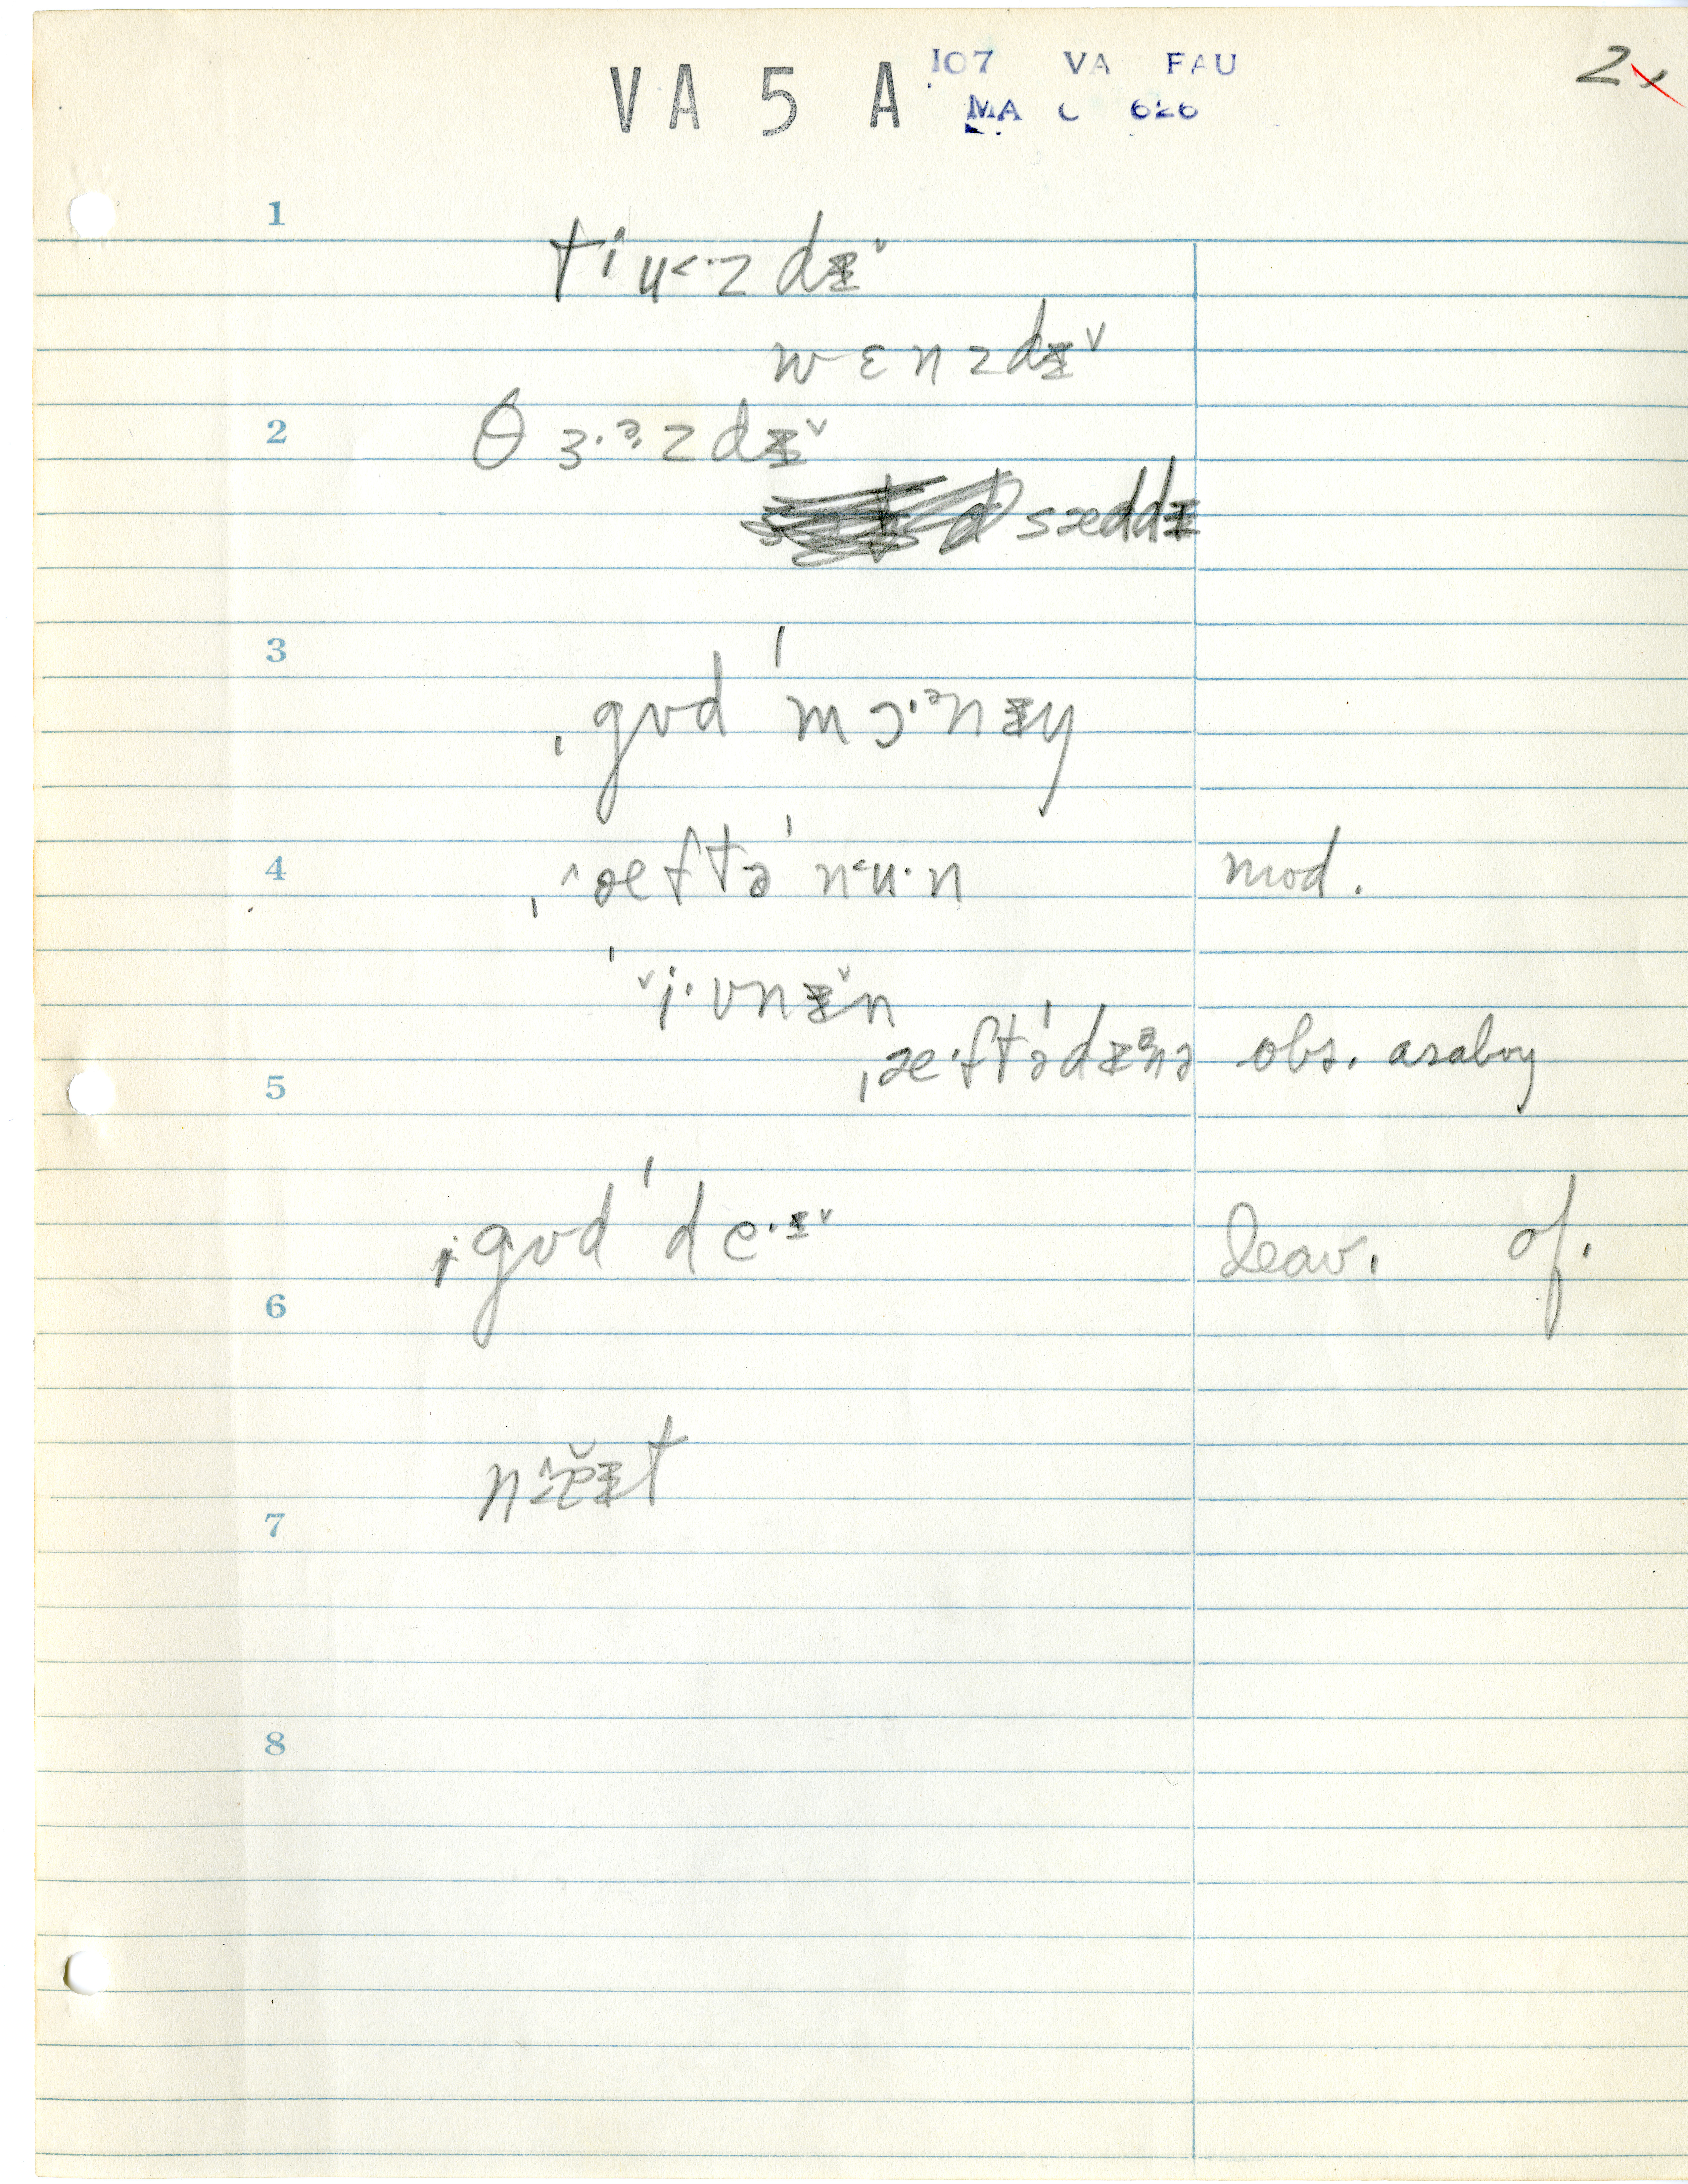 VA 5 A 107 VA FAU 2
MA C 626
1
tiu˂·zdɪ˅
wɛnzdɪ˅
2
θɜ·ᵊzdɪ˅
sæddɪ
3
ˌgʊd ˈmɔ·ᵊnɪŋ
4
ˌ˄æftə ˈn˂u·n mod.
ˈ˅i·vnɪ˅n
ˌæ·ftəˈdɪᵊnə obs. as a boy
5
ˌgʊd ˈde·ɪ˅ leav. of.
6
7
8